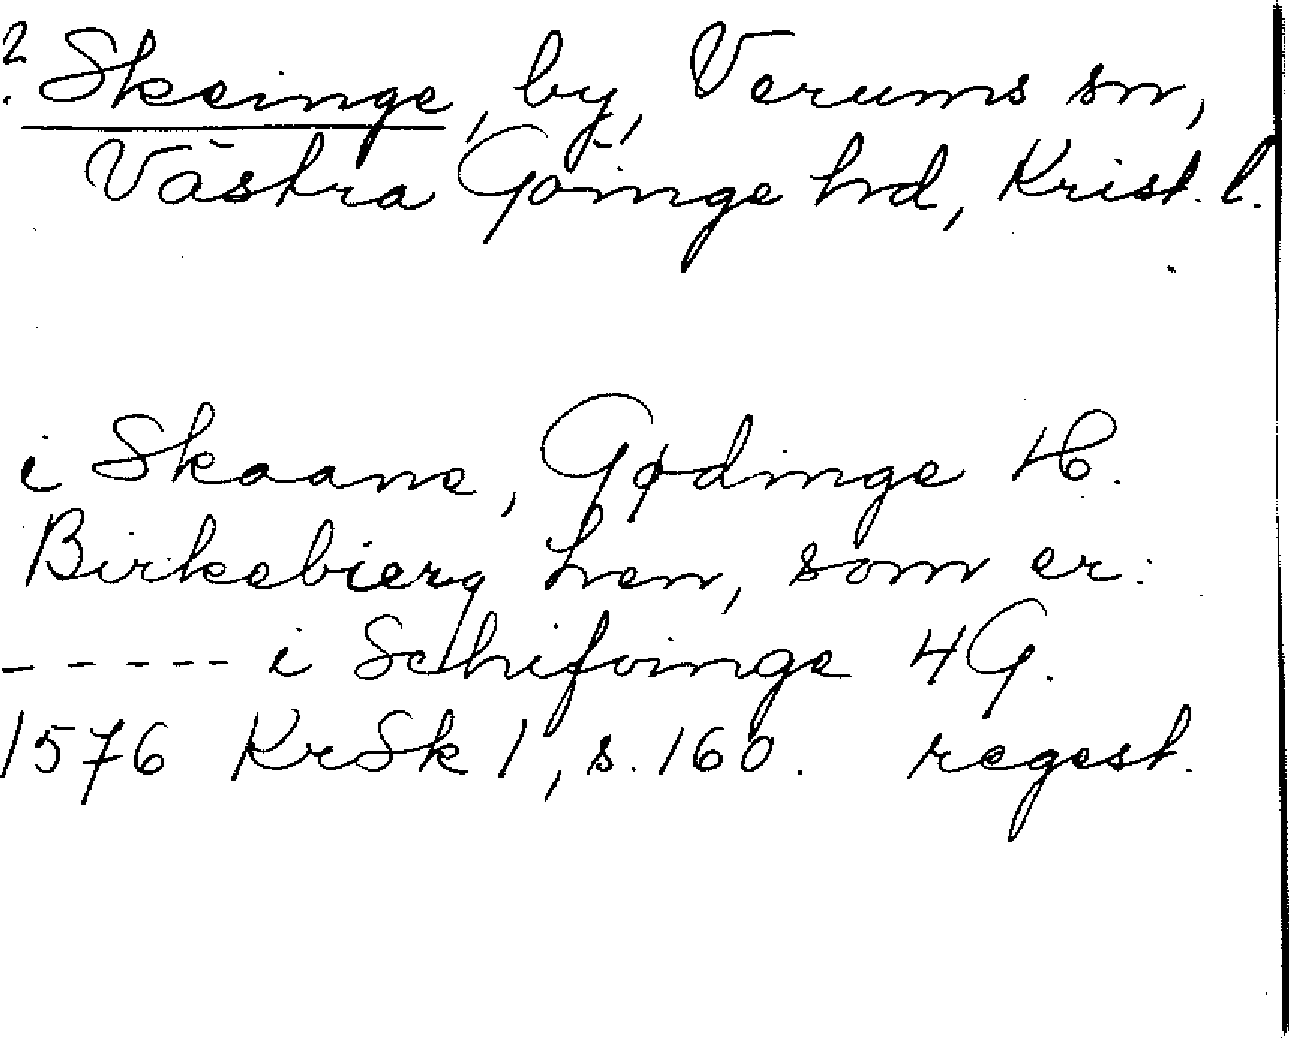 ? Skeinge, by, Verums sn,
Västra Göinge hd, Krist. l.
i Skaane, Gødinge H.
Birkebierg len, som er:
----- i Schifvinge 4 G.
1576 KrSk 1, s. 160. regest.